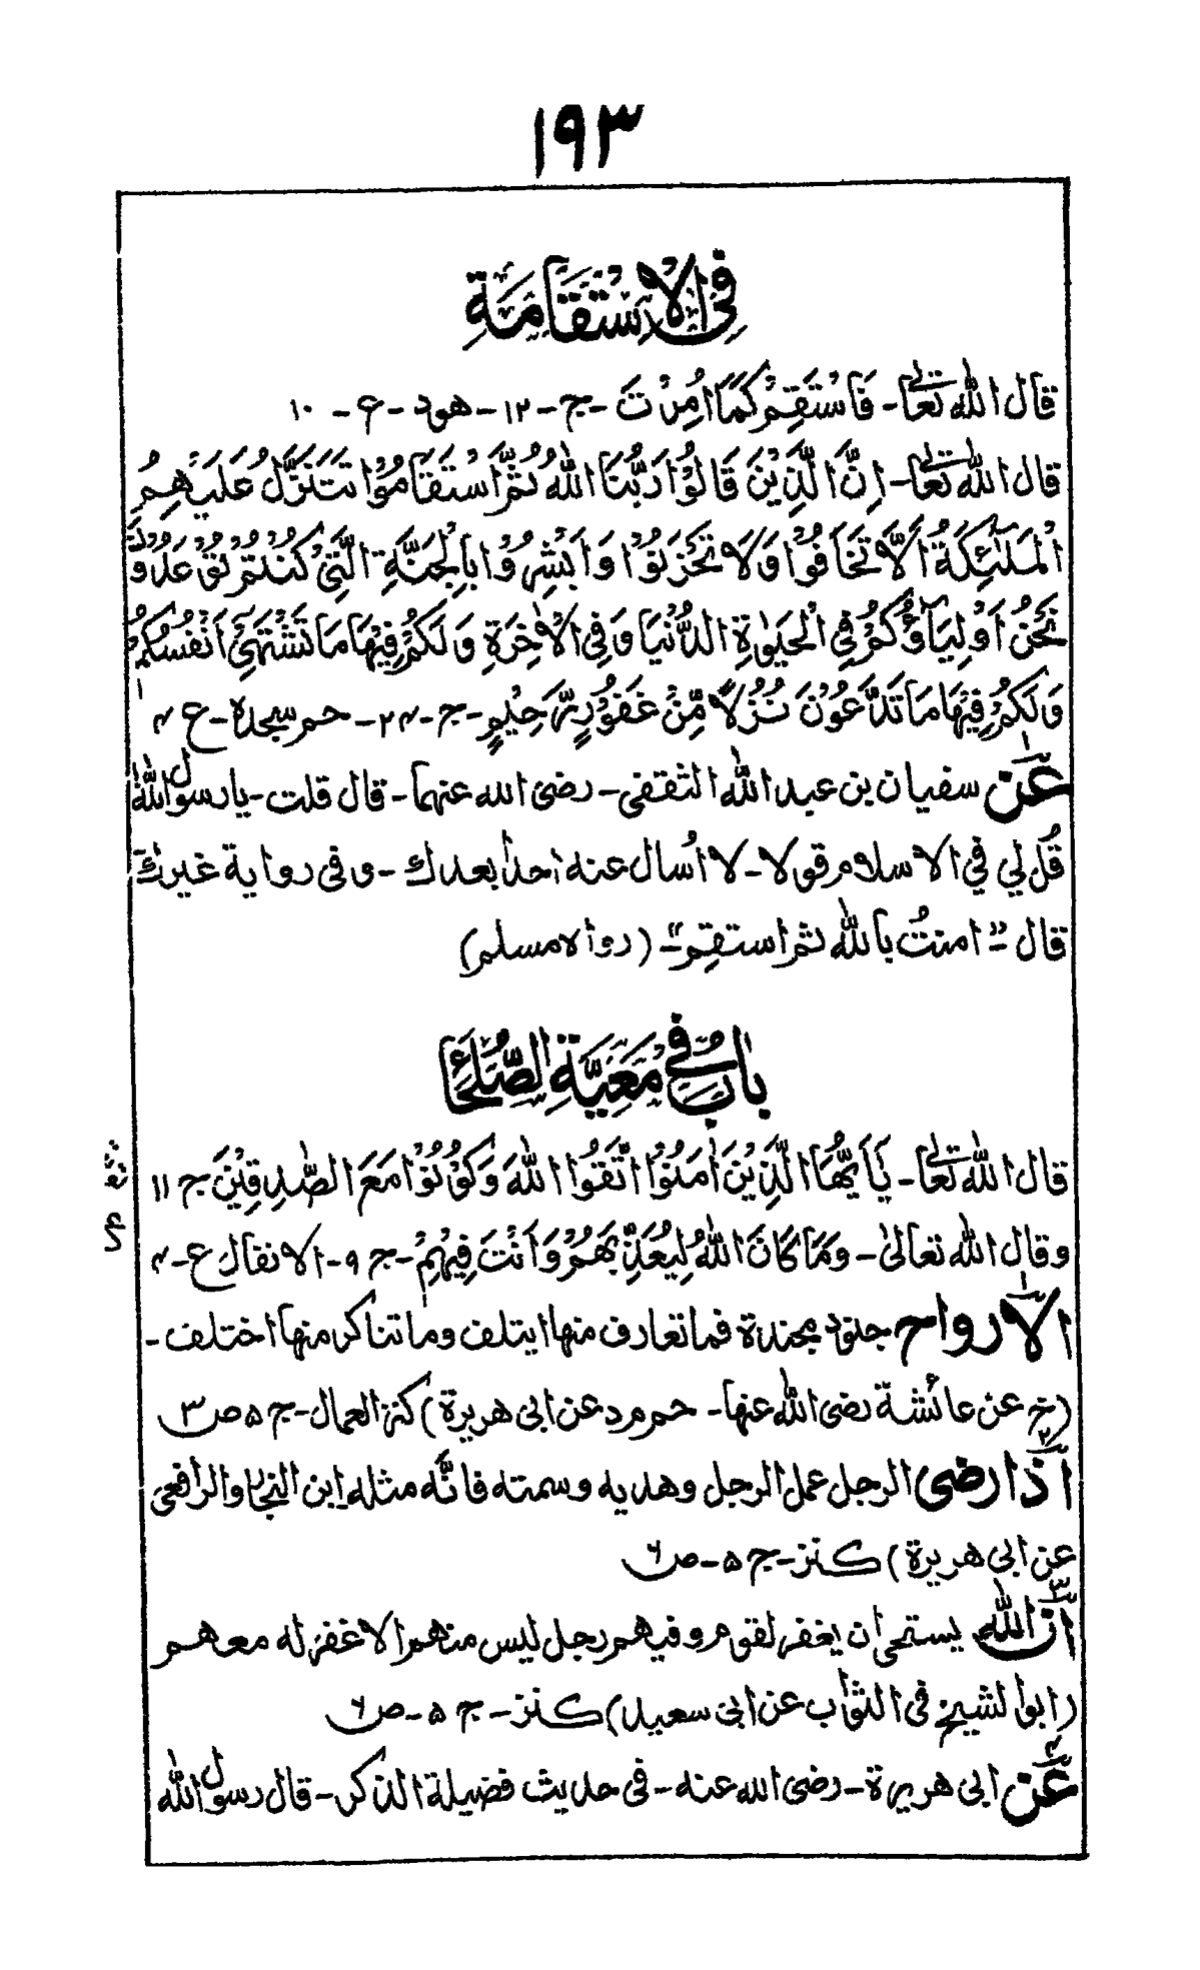 ١٩٣
فِى الْاِسْتِقَامَةِ
قال الله تعالى - فَاسْتَقِمْ كَمَا اُمِرْتَ - ج - ١٢ - هود - ع - ١٠
قال الله تعالى - اِنَّ الَّذِيْنَ قَالُوْا رَبُّنَا اللهُ ثُمَّ اسْتَقَامُوْا تَتَنَزَّلُ عَلَيْهِمُ
الْمَلٰٓئِكَةُ اَلَّا تَخَافُوْا وَلَا تَحْزَنُوْا وَاَبْشِرُوْا بِالْجَنَّةِ الَّتِىْ كُنْتُمْ تُوْعَدُوْنَ
نَحْنُ اَوْلِيَآؤُكُمْ فِى الْحَيٰوةِ الدُّنْيَا وَفِى الْاٰخِرَةِ وَلَكُمْ فِيْهَا مَا تَشْتَهِىْ اَنْفُسُكُمْ
وَلَكُمْ فِيْهَا مَا تَدَّعُوْنَ نُزُلًا مِّنْ غَفُوْرٍ رَّحِيْمٍ - ج - ٢٤ - حم سجدة - ع ٤
١ عَن سفيان بن عبد الله الثقفى - رضى الله عنهما - قال قلت - يا رسول الله
قُل لي في الاسلام قولا - لا اُسال عنه احدا بعدك - وفى رواية غيرك
قال " امنتُ بالله ثم استقِم " - (رواه مسلم)
بَابٌ فِى مَعِيَّةِ الصُّلَحَاءِ
قال الله تعالى - يٰٓاَيُّهَا الَّذِيْنَ اٰمَنُوا اتَّقُوا اللهَ وَكُوْنُوْا مَعَ الصّٰدِقِيْنَ ج ١١
وقال الله تعالىٰ - وَمَا كَانَ اللهُ لِيُعَذِّبَهُمْ وَاَنْتَ فِيْهِمْ - ج ٩ - الانفال ع - ٤
١ الارواح جنود مجندة فما تعارف منها ايتلف وما تناكر منها اختلف -
(خ عن عائشة رضى الله عنها - حم م د عن ابى هريرة) كنز العمال - ج ٥ ص ٣
٢ اذا رضى الرجل عمل الرجل وهديه وسمته فانّه مثله ابن النجار والرافعى
عن ابى هريرة) كنز - ج ٥ - ص ٦
٣ انّ الله يستحى ان يغفر لقوم وفيهم رجل ليس منهم الا غفر له معهم
(ابو الشيخ فى الثواب عن ابى سعيد) كنز - ج ٥ - ص ٦
٤ عَن ابى هريرة - رضى الله عنه - فى حديث فضيلة الذكر - قال رسول الله